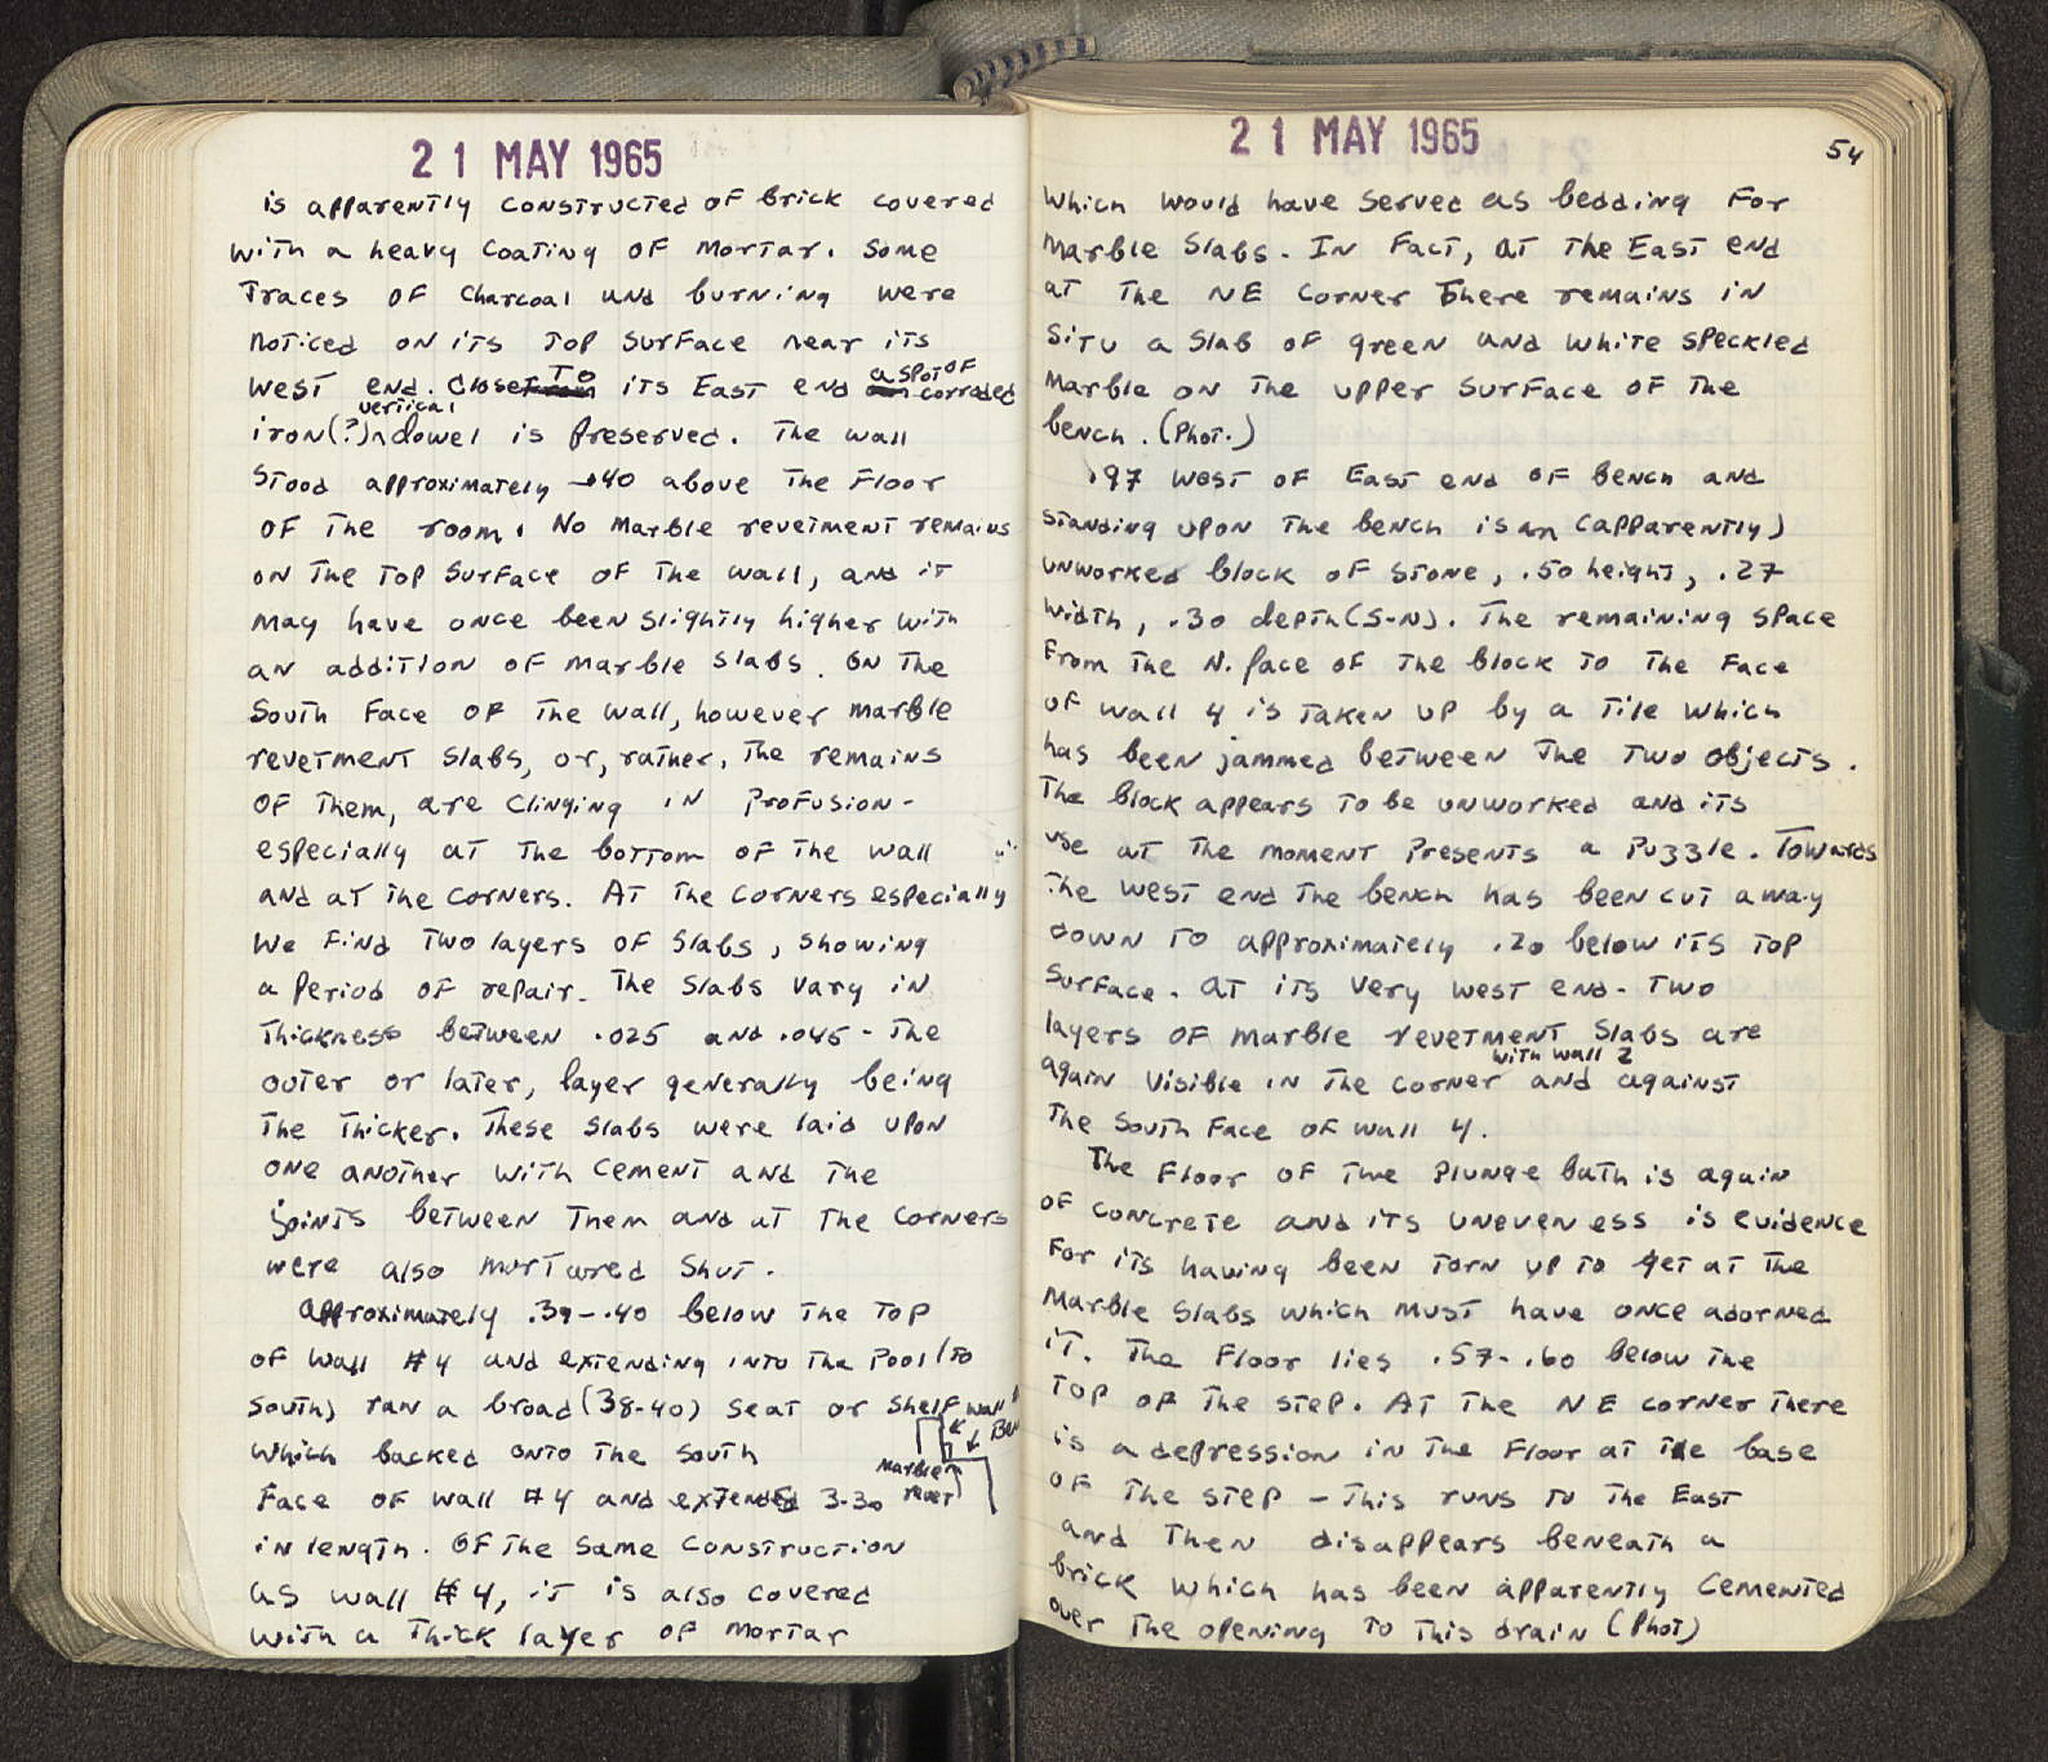 21 MAY 1965
is apparently constructed of brick covered
with a heavy coating of mortar. Some
traces of charcoal and burning were
noticed on its top surface near its
west end. Close to its East end a spot of corroded
iron(?) vertical dowel is preserved. The wall
stood approximately .40 above the floor
of the room. No marble revetment remains
on the top surface of the wall, and it
may have once been slightly higher with
an addition of marble slabs. On the
South face of the wall, however marble
revetment slabs, or, rather, the remains
of them, are clinging in profusion -
especially at the bottom of the wall
and at the corners. At the corners especially
we find two layers of slabs, showing
a period of repair. The slabs vary in
thickness between .025 and .045 - the
outer or later, layer generally being
the thicker. These slabs were laid upon
one another with cement and the
joints between them and at the corners
were also mortared shut.
Approximately .39-.40 below the top
of wall #4 and extending into the pool (to
south) ran a broad (38-40) seat or shelf
which backed onto the south
face of wall #4 and extended 3.30
in length. Of the same construction
as wall #4, it is also covered
with a thick layer of mortar
wall
Marble
revet
21 MAY 1965
54
which would have served as bedding for
marble slabs. In fact, at the East end
at the NE corner there remains in
situ a slab of green and white speckled
marble on the upper surface of the
bench. (Phot.)
.97 west of East end of bench and
standing upon the bench is an (apparently)
unworked block of stone, .50 height, .27
width, .30 depth (S-N). The remaining space
from the N. face of the block to the face
of wall 4 is taken up by a tile which
has been jammed between the two objects.
The block appears to be unworked and its
use at the moment presents a puzzle. Towards
the west end the bench has been cut away
down to approximately .20 below its top
surface. At its very west end - two
layers of marble revetment slabs are
again visible in the corner with wall 2 and against
the South face of wall 4.
The floor of the plunge bath is again
of concrete and its uneveness is evidence
for its having been torn up to get at the
marble slabs which must have once adorned
it. The floor lies .57-.60 below the
top of the step. At the NE corner there
is a depression in the floor at the base
of the step - this runs to the East
and then disappears beneath a
brick which has been apparently cemented
over the opening to this drain (Phot)